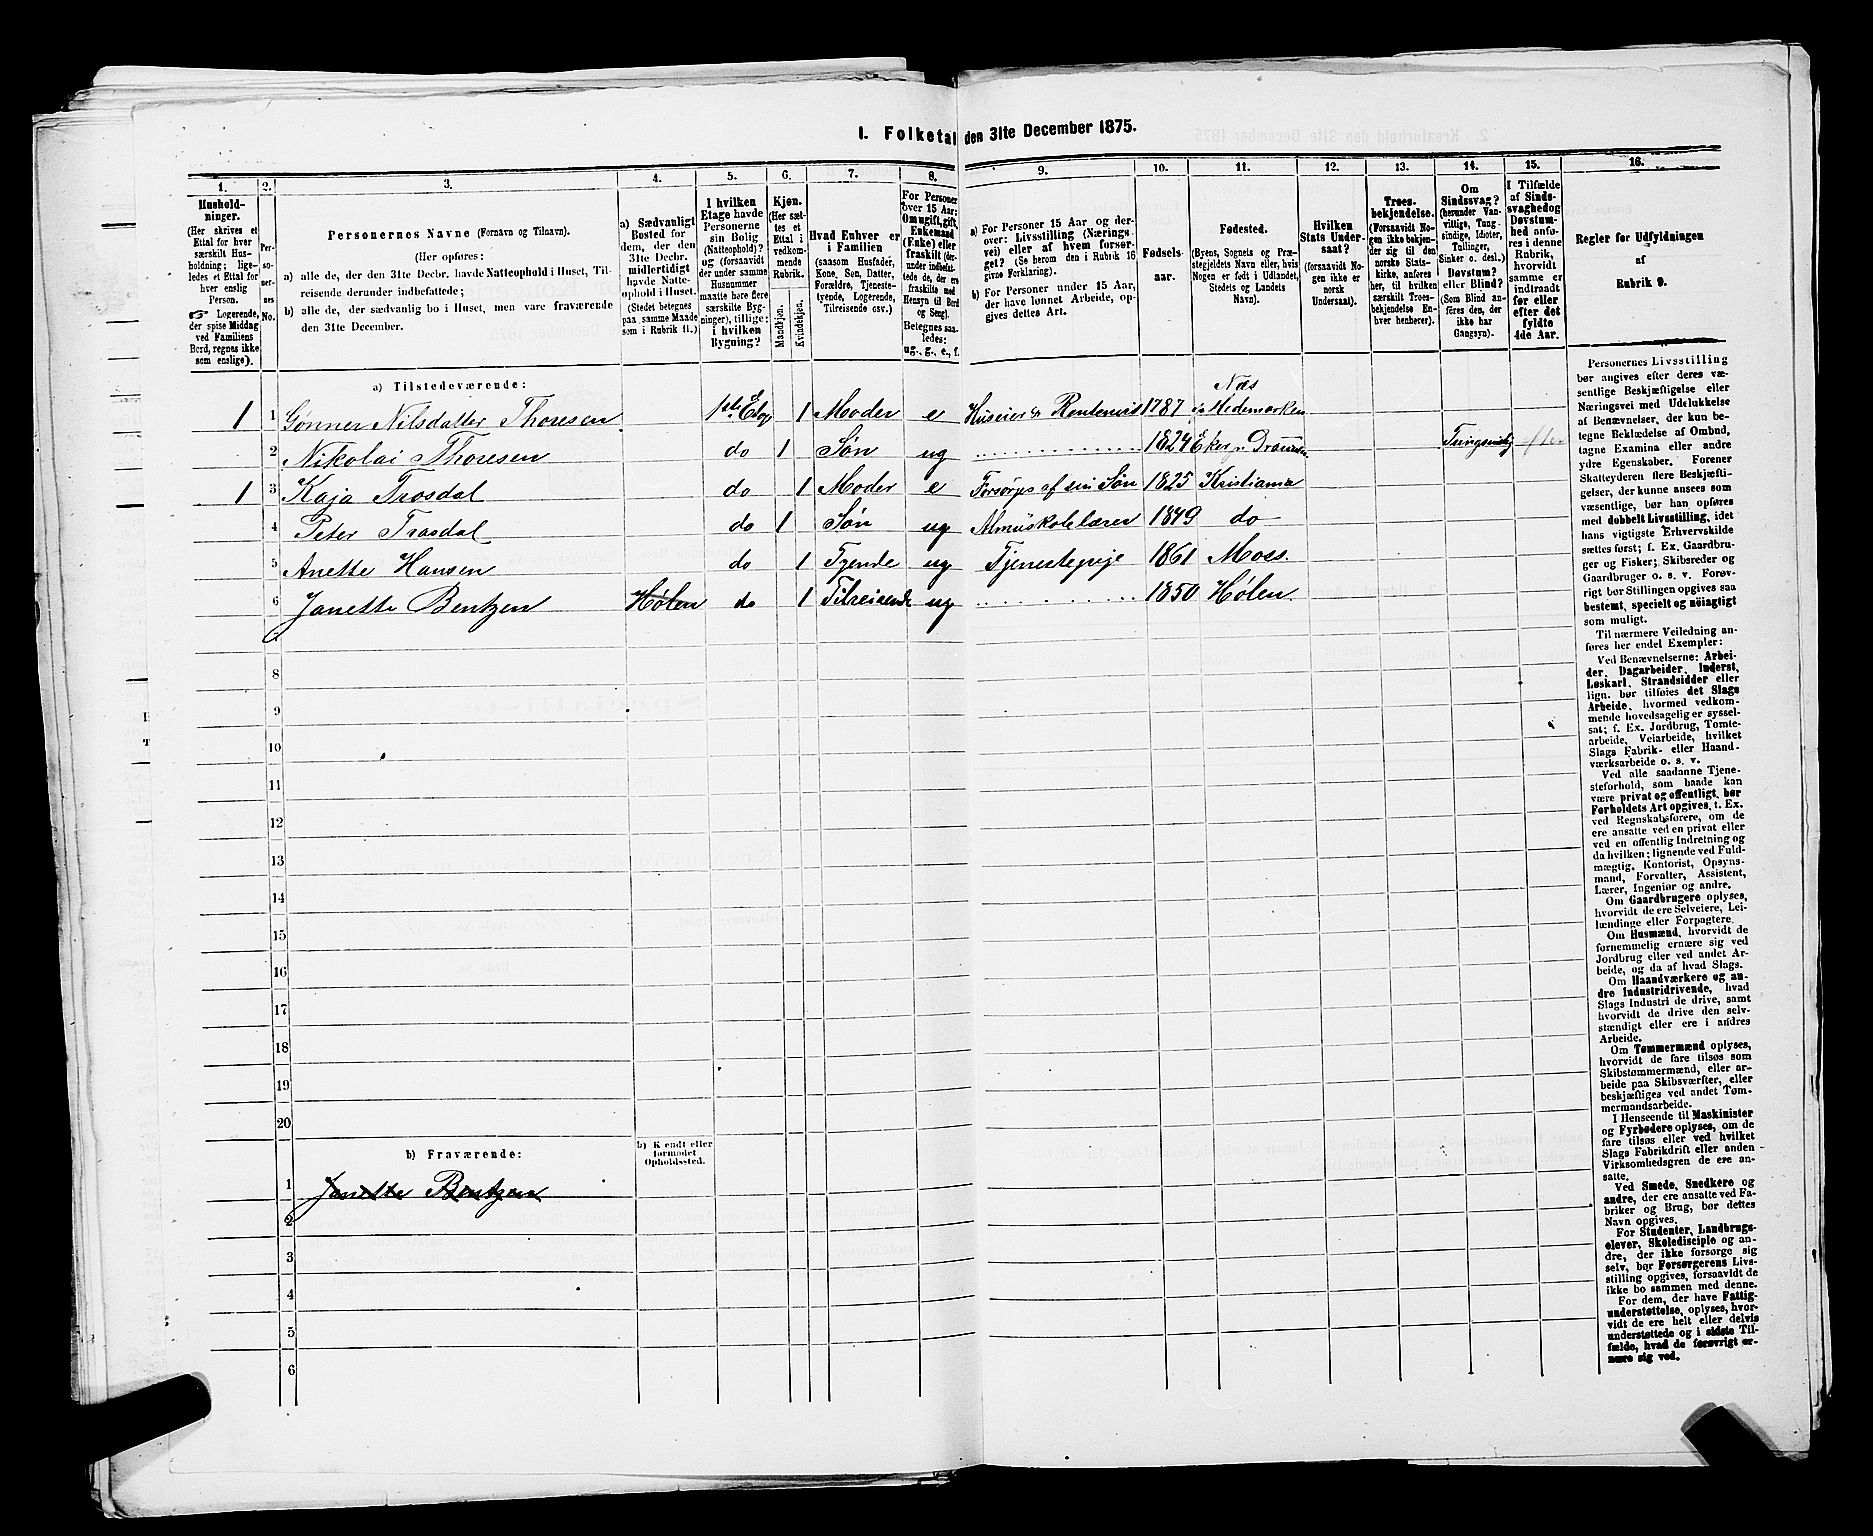 I. Folketal den 31te December 1875.
1. 2. 3. 4. 5. 6. 7. 8. 9. 10. 11. 12. 13. 14. 15. 16.
Husholdninger.
(Her skrives et
Ettal for hver
særskilt Husholdning;
ligeledes et Ettal for
hver enslig
Person.
Logerende,
der spise Middag
ved Familiens
Bord, regnes ikke
som enslige).
Personernes No.
Personernes Navne (Fornavn og Tilnavn).
(Her opføres:
a) alle de, der den 31te Decbr. havde Natteophold i Huset, Tilreisende
derunder indbefattede;
b) alle de, der sædvanlig bo i Huset, men vare fraværende
den 31te December.
a) Sædvanligt
Bosted for
dem, der den
31te Decbr.
midlertidigt
havde Natteophold
i Huset.
(Stedet betegnes
paa samme Maade
som i Rubrik 11.)
I hvilken
Etage havde
Personerne
sin Bolig
(Natteophold)?
og (forsaavidt
der under samme
Husnummer
maatte høre flere
særskilte Bygninger),
tillige:
i hvilken
Bygning?
Kjøn.
(Her sættes
et
Ettal i
vedkommende
Rubrik.
Mandkjøn.
Kvindekjøn.
Hvad Enhver er
i Familien
(saasom Husfader,
Kone, Søn, Datter,
Forældre, Tjenestetyende,
Logerende,
Tilreisende osv.)
For Personer
over 15 Aar:
Om ugift, gift,
Enkemand
(Enke) eller
fraskilt (derunder
indbefattede
de, der ere
fraskilte med
Hensyn til Bord
og Seng).
Betegnes saaledes:
ug., g., e., f.
a) For Personer 15 Aar og derover:
Livsstilling (Næringsvei)
eller af hvem forsørget?
(Se herom den i Rubrik 16
givne Forklaring).
b) For Personer under 15 Aar,
der have lønnet Arbeide, opgives
dettes Art.
Fødselsaar.
Fødested.
(Byens, Sognets og Præstegjeldets
Navn eller, hvis
Nogen er født i Udlandet,
Stedets og Landets
Navn).
Hvilken
Stats Undersaat?
(forsaavidt Nogen
ikke er
norsk
Undersaat).
Troesbekjendelse.
(Forsaavidt Nogen
ikke bekjender
sig til den
norske Statskirke,
anføres
her, til hvilken
særskilt Troesbekjendelse
Enhver
henhører).
Om
Sindssvag?
(herunder Vanvittige,
Tungsindige,
Idioter,
Tullinger,
Sinker o. desl.)
Døvstum?
eller Blind?
(Som Blind anføres
den, der
ikke har
Gangsyn).
I Tilfælde
af Sindssvaghed
og
Døvstumhed
anføres
i denne
Rubrik,
hvorvidt
samme er
indtraadt
før eller
efter det
fyldte
4de Aar.
Regler for Udfyldningen
af
Rubrik 9.
a) Tilstedeværende:
1 1 Gønner Nilsdatter Thoresen 1ste Etag 1 Moder e Huseier 1787 Næs Hedemarken
2 Nikolai Thoresen do 1 Søn ug 1824 Eker Drammen Tungsindig
1 3 Kaja Trosdal do 1 Moder e Forsørges af sin Søn 1825 Kristiania
4 Peter Trosdal do 1 Søn ug Almuskolelærer 1849 do
5 Anette Hansen do 1 Tyende ug Tjenestepige 1861 Moss.
6 Janette Bentzen Hølen do 1 Tilreisende ug 1850 Hølen.
8
9
10
11
12
13
14
15
16
17
18
19
20
b) Fraværende:
b) Kjendt eller
formodet
Opholdssted.
1 Janette Bentzen
2
3
4
5
6
Personernes Livsstilling
bør angives efter deres væsentlige
Beskjæftigelse eller
Næringsvei med Udelukkelse
af Benævnelser, der kun betegne
Beklædelse af Ombud,
tagne Examina eller andre
ydre Egenskaber. Forener
Skatteyderen flere Beskjæftigelser,
der kunne ansees som
væsentlige, bør han opføres
med dobbelt Livsstilling, idet
hans vigtigste Erhvervskilde
sættes først; f. Ex. Gaardbruger
og Fisker; Skibsreder og
Gaardbruger o. s. v. Forøvrigt
bør Stillingen opgives saa
bestemt, specielt og nøiagtigt
som muligt.
Til nærmere Veiledning anføres
her endel Exempler:
Ved Benævnelserne: Arbeider,
Dagarbeider, Inderst,
Løskarl, Strandsidder eller
lign. bør tilføies det Slags
Arbeide, hvormed vedkommende
hovedsagelig er sysselsat;
f. Ex. Jordbrug, Tomtearbeide,
Veiarbeide, hvilket
Slags Fabrik- eller Haandværksarbeide
o. s. v.
Ved alle saadanne Tjenesteforhold,
som baade kan
være privat og offentligt, bør
Forholdets Art opgives, t. Ex.
ved Regnskabsførere, om de
ere ansatte ved en privat eller
ved en offentlig Indretning og
da hvilken; lignende ved Fuldmægtig,
Kontorist, Opsynsmand,
Forvalter, Assistent,
Lærer, Ingeniør og andre.
Om Gaardbrugere oplyses,
hvorvidt de ere Selveiere, Leilændinge
eller Forpagtere.
Om Husmænd, hvorvidt de
fornemmelig ernære sig ved
Jordbrug eller ved andet Arbeide,
og da af hvad Slags.
Om Haandværkere og andre
Industridrivende, hvad
Slags Industri de drive, samt
hvorvidt de drive den selvstændigt
eller ere i andres
Arbeide.
Om Tømmermænd oplyses,
hvorvidt de fare tilsøs som
Skibstømmermænd, eller arbeide
paa Skibsværfter, eller
beskjæftiges ved andet Tømmermandsarbeide.
I Henseende til Maskinister
og Fyrbødere oplyses, om de
fare tilsøs eller ved hvilket
Slags Fabrikdrift eller anden
Virksomhedsgren de ere ansatte.
Ved Smede, Snedkere og
andre, der ere ansatte ved Fabriker
og Brug, bør dettes
Navn opgives.
For Studenter, Landbrugselever,
Skoledisciple og andre,
der ikke forsørge sig
selv, bør Forsørgerens Livsstilling
opgives, forsaavidt de
ikke bo sammen med denne.
For dem, der have Fattigunderstøttelse,
oplyses, hvorvidt
de ere helt eller delvis
understøttede og i sidste Tilfælde,
hvad de forøvrigt ernære
sig ved.